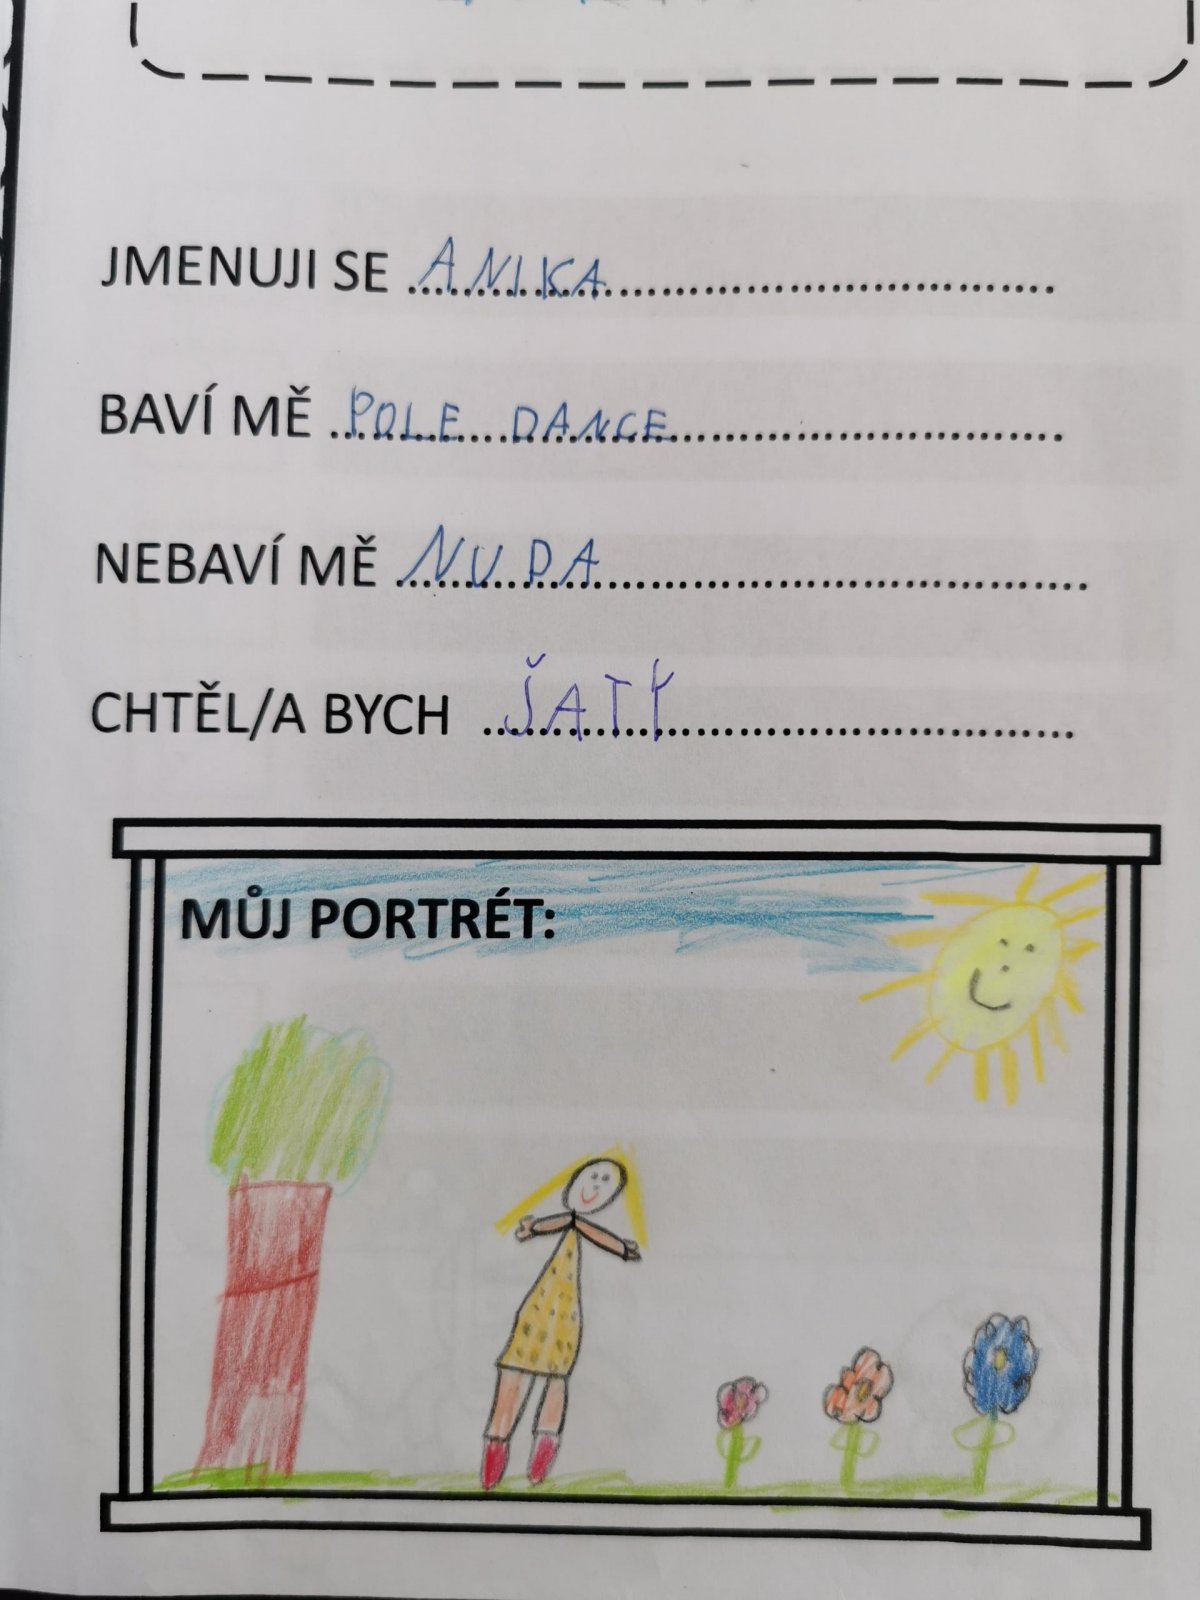 JMENUJI SE ANIKA
BAVÍ MĚ POLE DANCE
NEBAVÍ MĚ NUDA
CHTĚL/A BYCH ŠATY
MŮJ PORTRÉT: